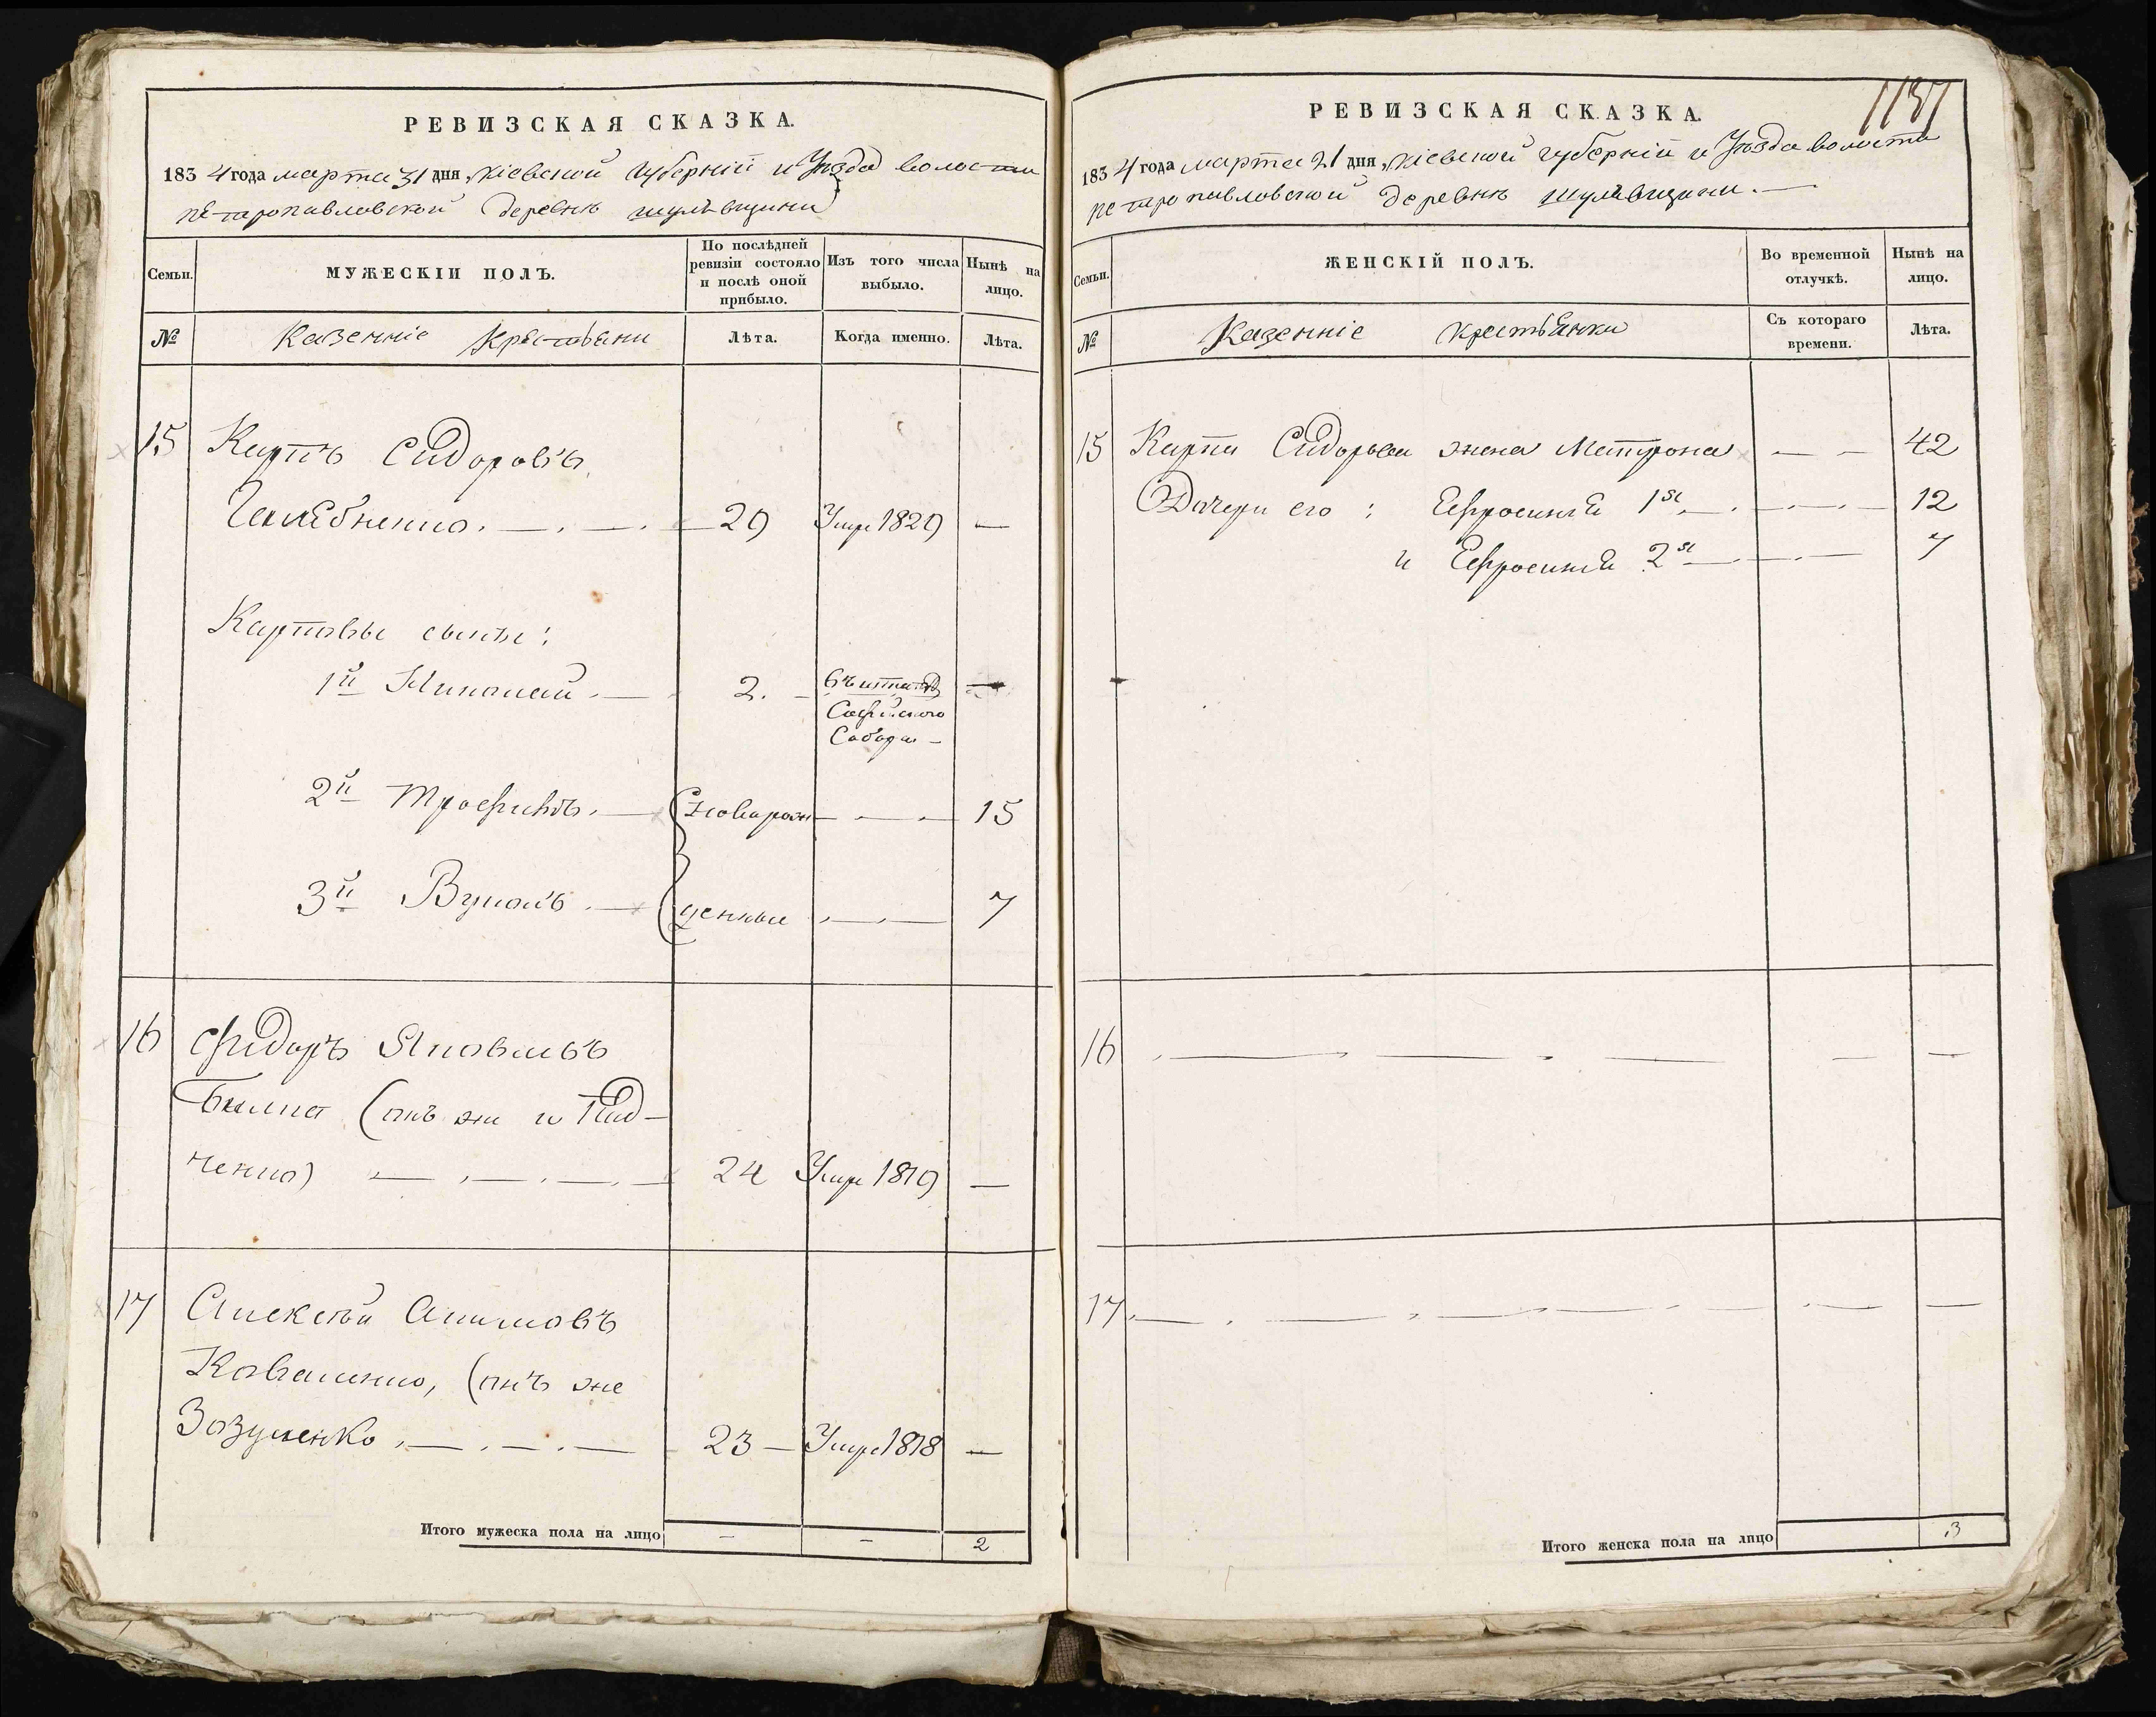 РЕВИЗСКАЯ СКАЗКА.
1834 года марта 31 дня, Кіевской губерніи и Уѣзда волости
петропавловской деревнѣ шулявщини
Семьи.
МУЖЕСКІИ ПОЛЪ.
По послѣдней ревизіи состояло и послѣ оной прибыло.
Изъ того числа выбыло.
Нынѣ на лицо.
№
Казенніе крестьяни
Лѣта.
Когда именно.
Лѣта.
15 Карпъ Сидоровъ
29 Умре 1829 —
Карповы сыны:
1й Николай. — 2. —
Софійского
Собора —
2й Трофимъ. — новорож — 15
3й Вуколъ. — денные — 7
16 Фидоръ Яковлевъ
(онъ же и
ченко) — 24 Умре 1819 —
17 Алексѣй Акимовъ
Коваленко, (онъ же
Зозуленко — 23 — Умре 1818 —
Итого мужеска пола на лицо — — 2
1137
РЕВИЗСКАЯ СКАЗКА.
1834 года марта 21 дня, Кіевской губерніи и Уѣзда волости
петропавловской деревнѣ шулявщини. —
Семьи.
ЖЕНСКІЙ ПОЛЪ.
Во временной отлучкѣ.
Нынѣ на лицо.
№
Казенніе крестьянки
Съ котораго времени.
Лѣта.
15 Карпа Сидорова жена Матрона — — 42
Дочери его: Ефросинія 1я — 12
и Ефросинія 2я — 7
16 — — — — —
17 — — — — —
Итого женска пола на лицо 3